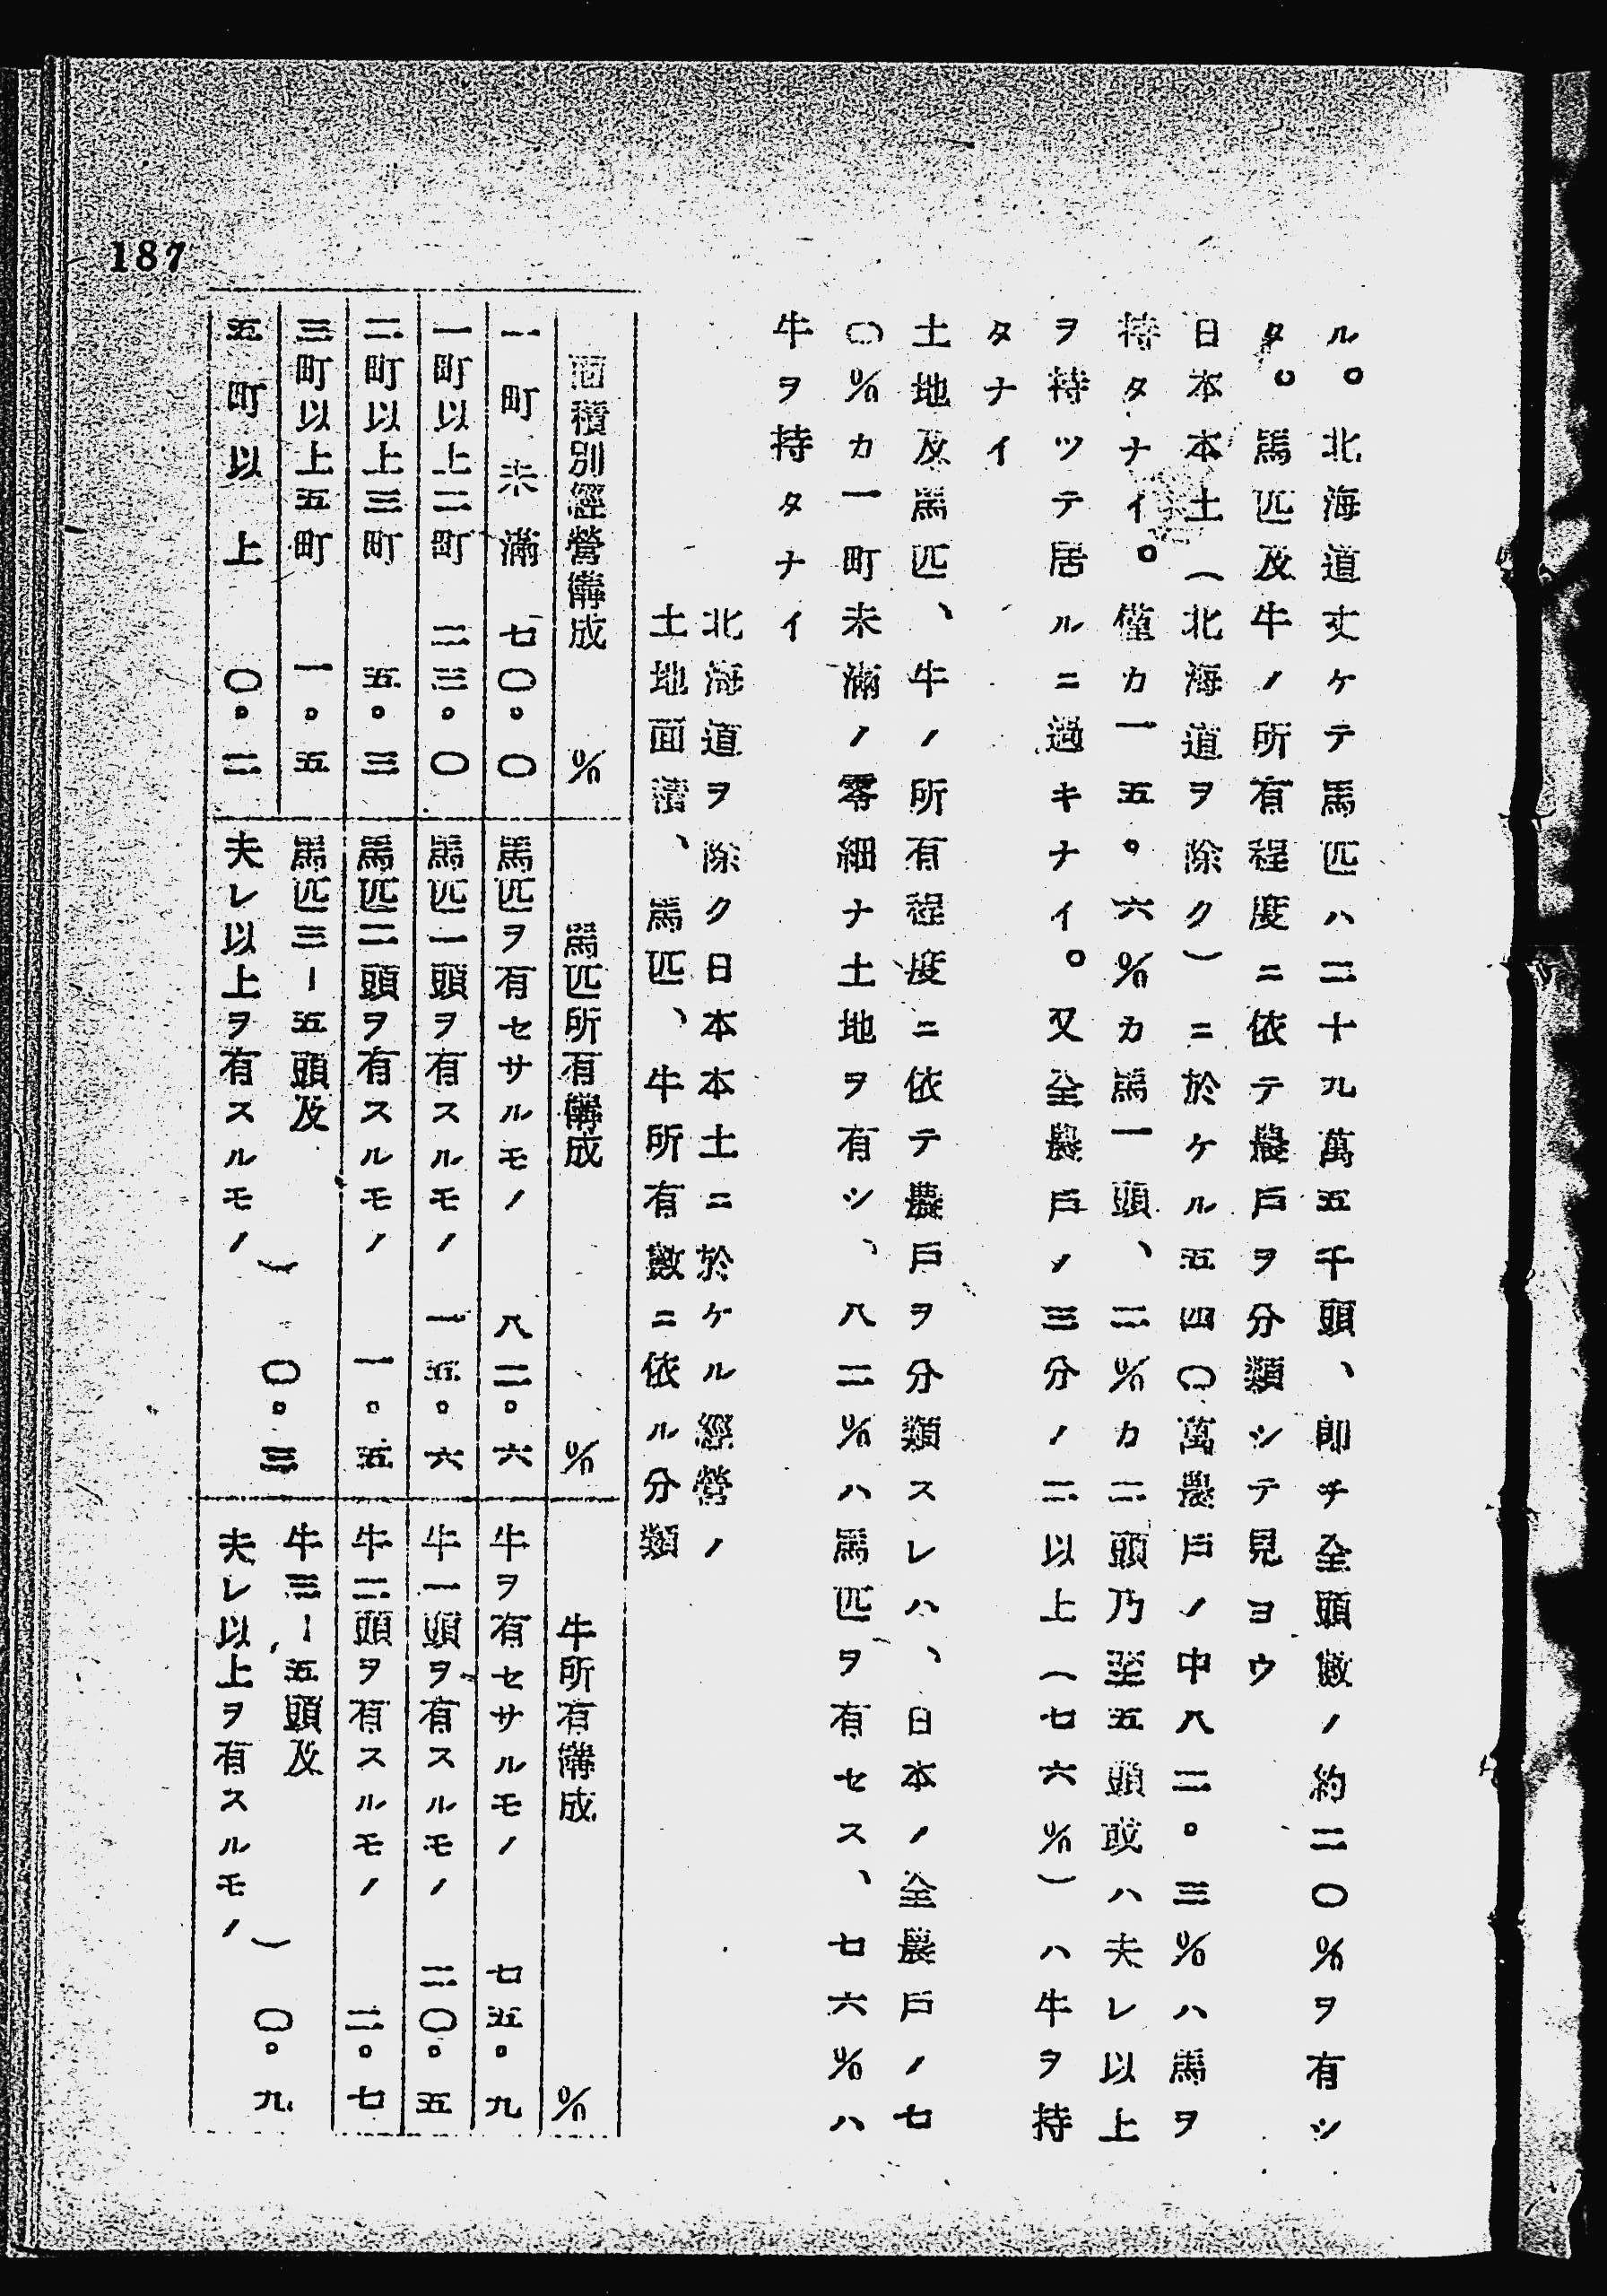 ル。北海道丈ケテ馬匹ハ二十九萬五千頭、卽チ全頭數ノ約二〇％ヲ有シ
タ。馬匹及牛ノ所有程度ニ依テ農戶ヲ分類シテ見ヨウ
日本本土（北海道ヲ除ク）ニ於ケル五四〇萬農戶ノ中八二。三％ハ馬ヲ
持タナイ。僅カ一五。六％カ馬一頭、二％カ二頭乃至五頭或ハ夫レ以上
ヲ持ツテ居ルニ過キナイ。又全農戶ノ三分ノ二以上（七六％）ハ牛ヲ持
タナイ
土地及馬匹、牛ノ所有程度ニ依テ農戶ヲ分類スレハ、日本ノ全農戶ノ七
〇％カ一町未滿ノ零細ナ土地ヲ有シ、八二％ハ馬匹ヲ有セス、七六％ハ
牛ヲ持タナイ
北海道ヲ除ク日本本土ニ於ケル經營ノ
土地面積、馬匹、牛所有數ニ依ル分類
面積別經營構成 ％ 馬匹所有構成 ％ 牛所有構成 ％
一町未滿 七〇。〇 馬匹ヲ有セサルモノ 八二。六 牛ヲ有セサルモノ 七五。九
一町以上二町 二三。〇 馬匹一頭ヲ有スルモノ 一五。六 牛一頭ヲ有スルモノ 二〇。五
二町以上三町 五。三 馬匹二頭ヲ有スルモノ 一。五 牛二頭ヲ有スルモノ 二。七
三町以上五町 一。五 馬匹三ー五頭及 牛三ー五頭及
五町以上 〇。二 夫レ以上ヲ有スルモノ ） 〇。三 夫レ以上ヲ有スルモノ ） 〇。九
187